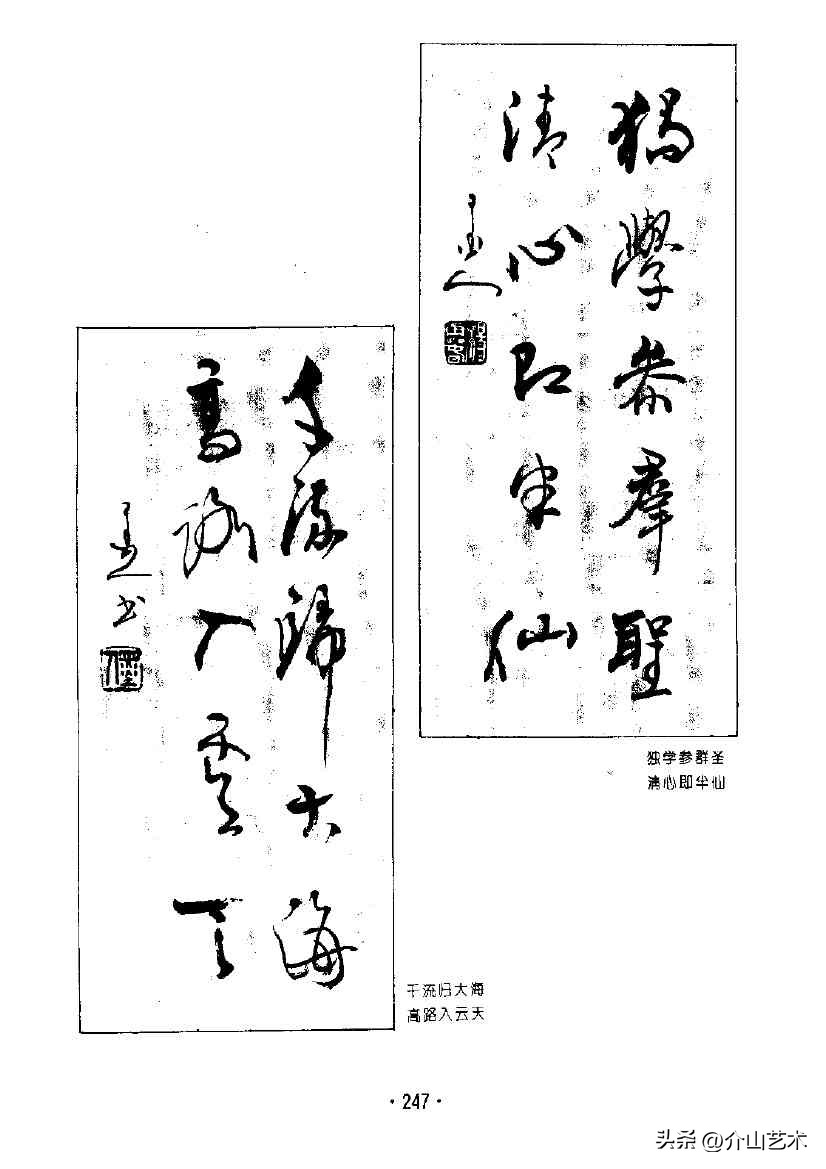 獨學參群聖
清心即半仙
独学参群圣
清心即半仙
千流歸大海
高路入雲天
书
千流归大海
高路入云天
·247·
头条 @介山艺术